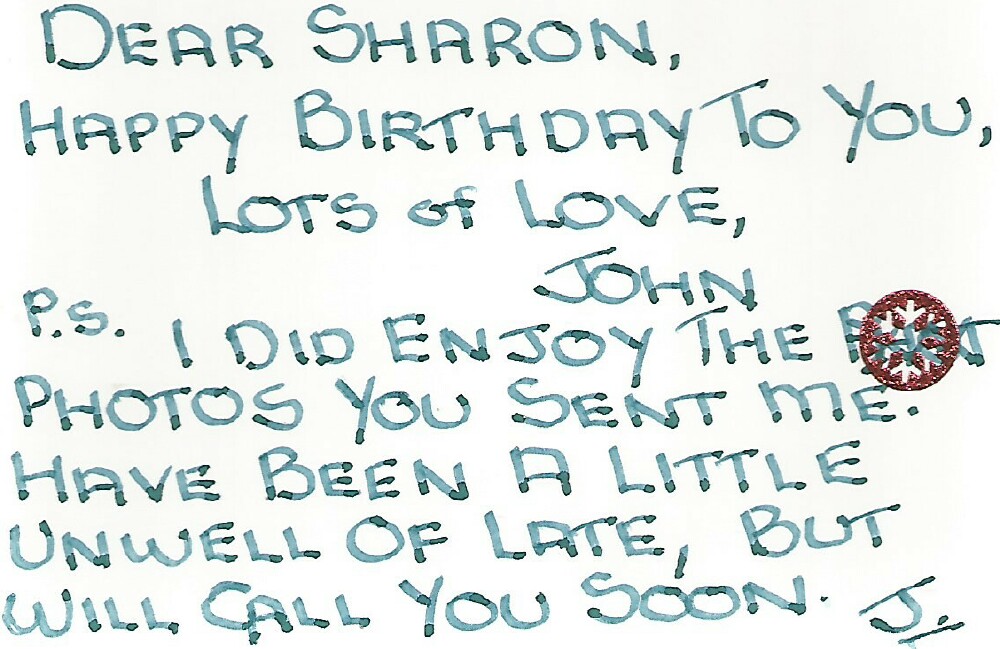 DEAR SHARON,
HAPPY BIRTHDAY TO YOU,
LOTS of LOVE,
JOHN
P.S. I DID ENJOY THE
PHOTOS YOU SENT ME.
HAVE BEEN A LITTLE
UNWELL OF LATE, BUT
WILL CALL YOU SOON. J.